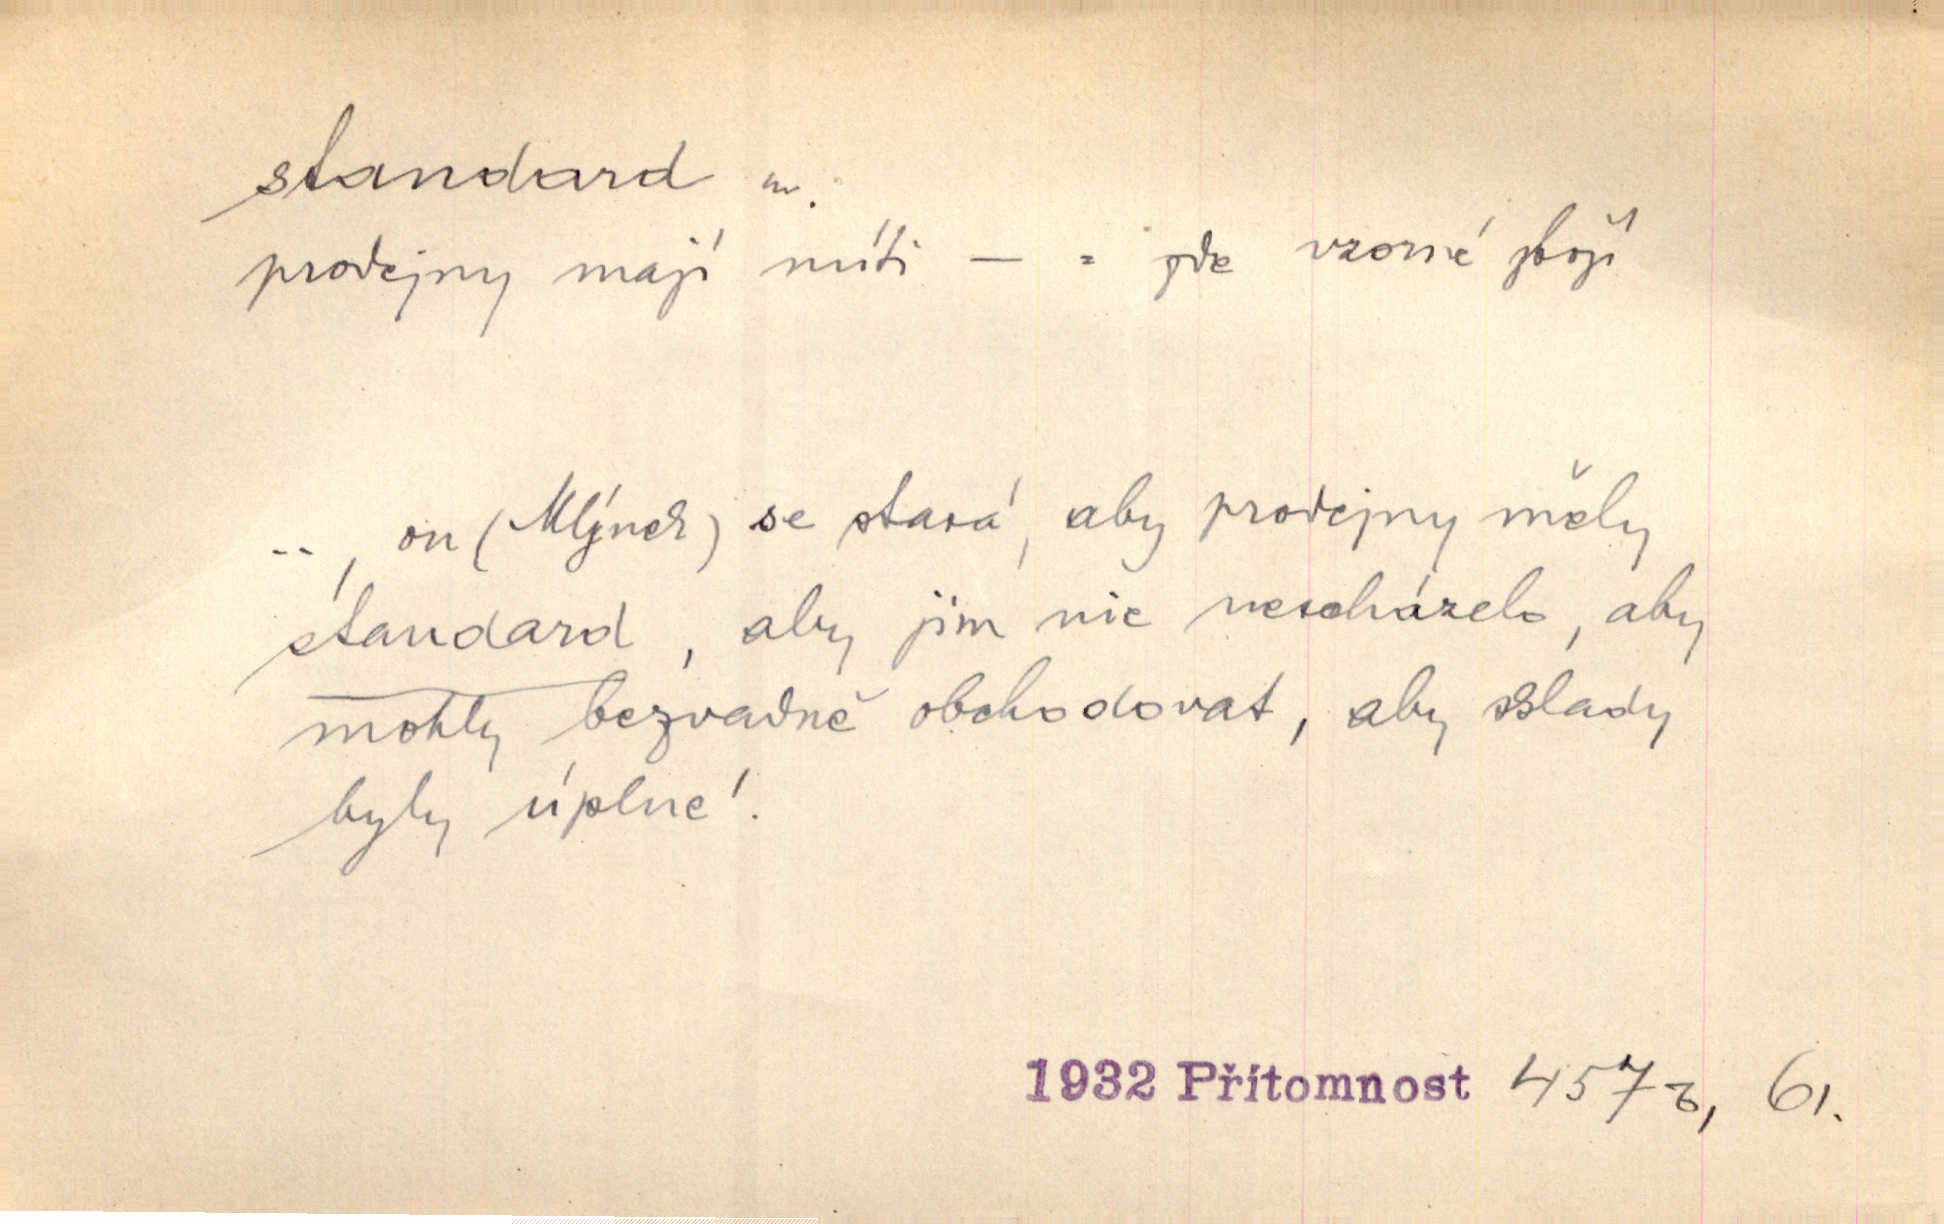 standard m.
prodejny mají míti — = zde vzorné zboží
.., on (Mlýnek) se stará, aby prodejny měly
standard, aby jim nic nescházelo, aby
mohly bezvadně obchodovat, aby sklady
byly úplné.
1932 Přítomnost 457b, 61.